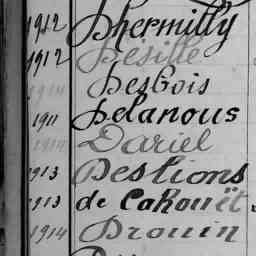 1912 Dhermilly
1912 Désille
1914 Desbois
1911 Delanous
1914 Dariel
1913 Deslions
1913 de Carouët
1914 Drouin